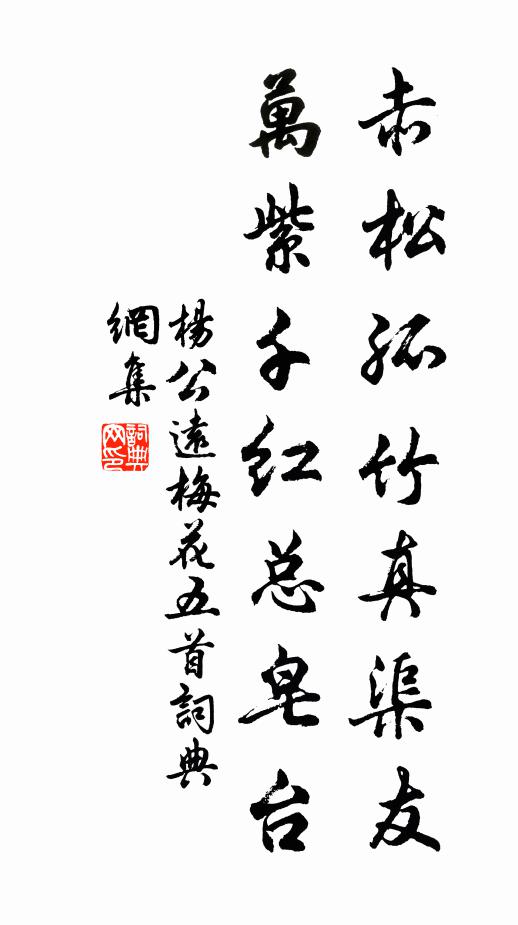 赤松孤竹真渠友
萬紫千红总皂台
楊公遠梅花五首詞典
網集
詞典
网印